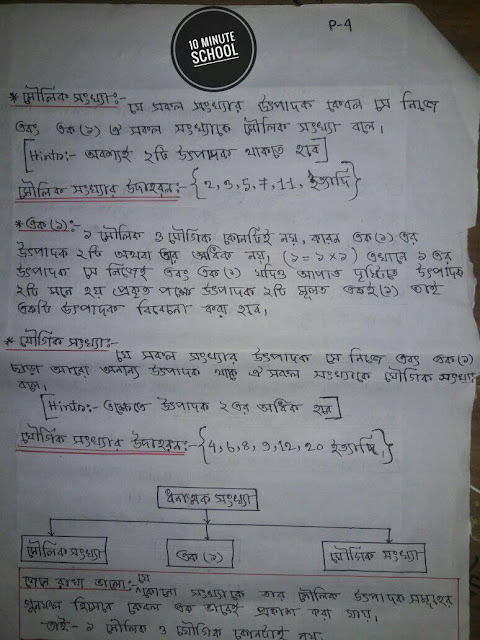 10 MINUTE
SCHOOL
P-4
* মৌলিক সংখ্যা:- যে সকল সংখ্যার উৎপাদক কেবল সে নিজে
এবং এক (১) ঐ সকল সংখ্যাকে মৌলিক সংখ্যা বলে।
[Hints:- অবশ্যই ২টি উৎপাদক থাকতে হবে]
মৌলিক সংখ্যার উদাহরন:- {2, 3, 5, 7, 11, ইত্যাদি}
* এক (১):- ১ মৌলিক ও যৌগিক কোনটিই নয়, কারন এক (১) এর
উৎপাদক ২টি অথবা তার অধিক নয়, (১ = ১ × ১) এখানে ১ এর
উৎপাদক সে নিজেই এবং এক (১) যদিও আপাত দৃষ্টিতে উৎপাদক
২টি মনে হয় প্রকৃত পক্ষে উৎপাদক ২টি মূলত একই (১) তাই
একটি উৎপাদক বিবেচনা করা হবে।
* যৌগিক সংখ্যা:- যে সকল সংখ্যার উৎপাদক সে নিজে এবং এক (১)
ছাড়া আরো অনান্য উৎপাদক থাকে ঐ সকল সংখ্যাকে যৌগিক সংখ্যা
বলে।
[Hints:- এক্ষেত্রে উৎপাদক ২ এর অধিক হবে]
যৌগিক সংখ্যার উদাহরন:- {4, 6, 8, 9, 12, 20 ইত্যাদি}
ধনাত্মক সংখ্যা
মৌলিক সংখ্যা এক (১) যৌগিক সংখ্যা
রাখা ভালো:- যে কোনো সংখ্যাকে তার মৌলিক উৎপাদক সমূহের
গুনফল হিসেবে কেবল এক ভাবেই প্রকাশ করা যায়।
তাই- ১ মৌলিক ও যৌগিক কোনটাই নয়